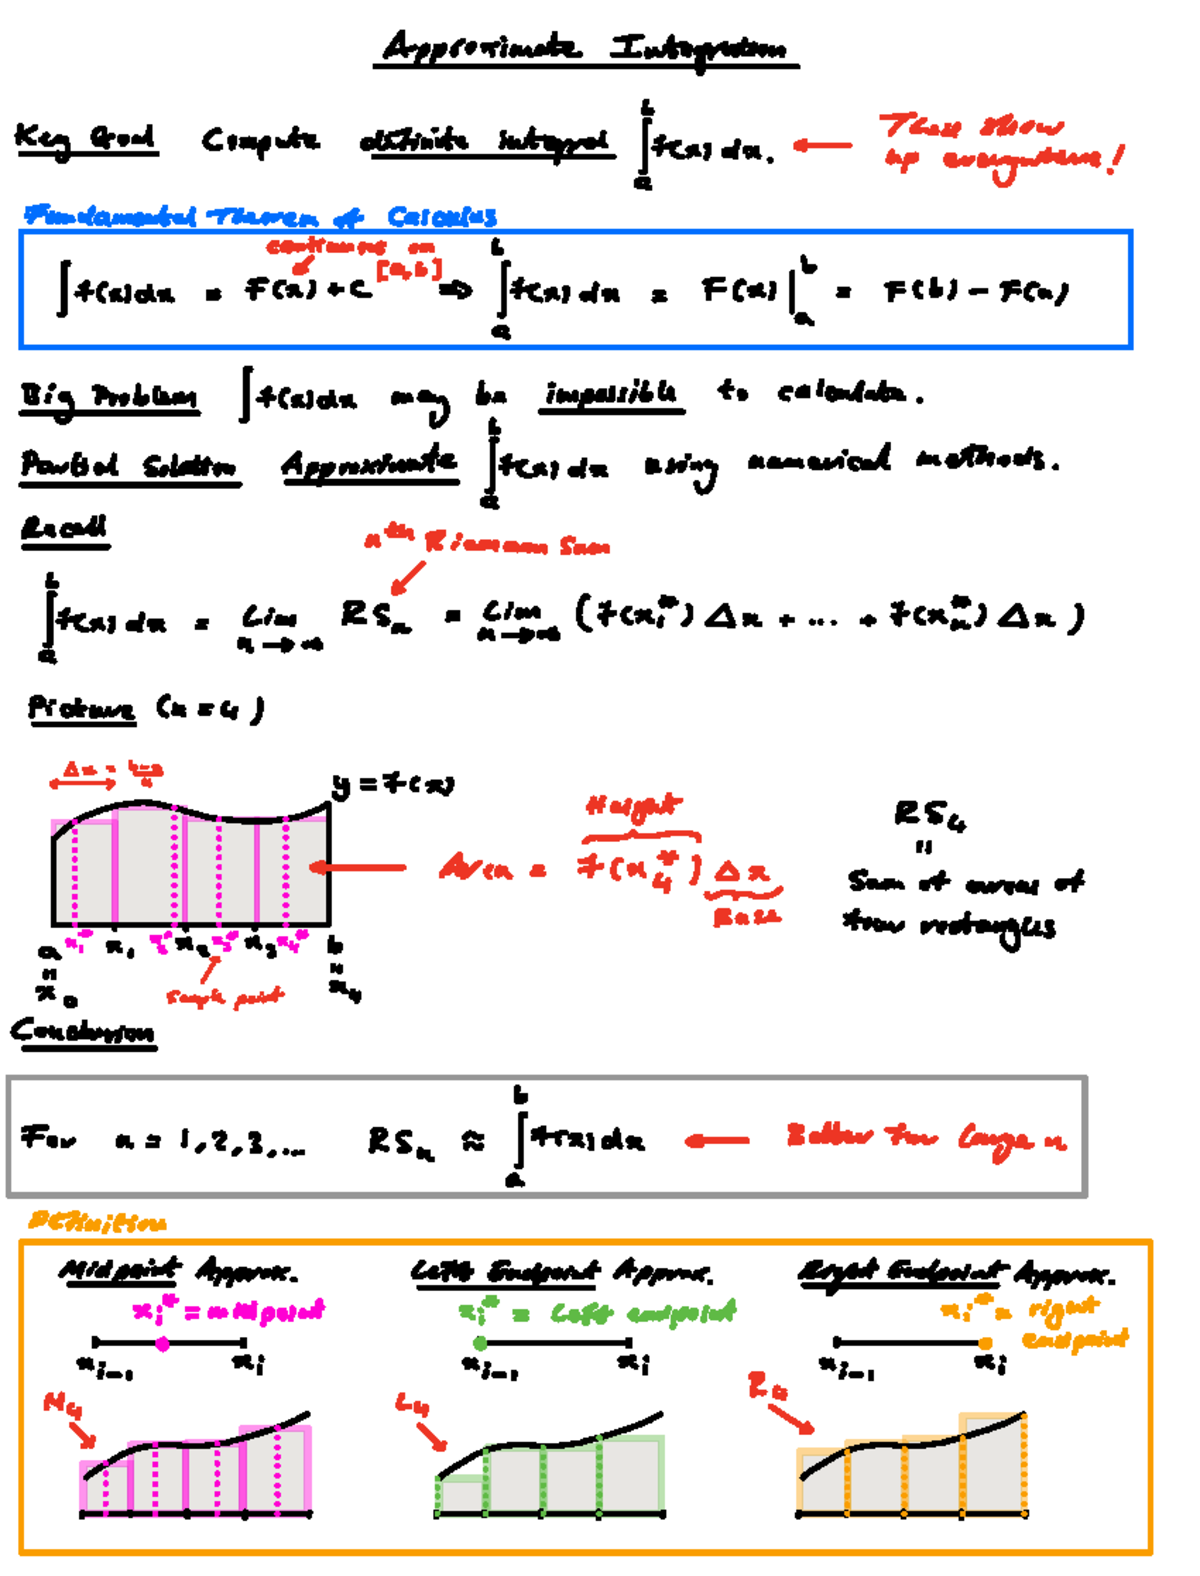 Approximate Integration
Key Goal Compute definite integral ∫_a^b f(x) dx. ← They show up everywhere!
Fundamental Theorem of Calculus
continuous on [a,b]
∫ f(x) dx = F(x) + C ⇒ ∫_a^b f(x) dx = F(x) |_a^b = F(b) - F(a)
Big Problem ∫ f(x) dx may be impossible to calculate.
Partial Solution Approximate ∫_a^b f(x) dx using numerical methods.
Recall
n^th Riemann Sum
∫_a^b f(x) dx = lim_{n→∞} RS_n = lim_{n→∞} (f(x_1^*) Δx + ... + f(x_n^*) Δx)
Picture (n = 4)
Δx = (b-a)/4
y = f(x)
Area = f(x_4^*) Δx
Height
Base
RS_4
=
Sum of areas of
four rectangles
a x_1^* x_1 x_2^* x_2 x_3^* x_3 x_4^* b
= =
x_0 x_4
Sample point
Conclusion
For n = 1, 2, 3, ... RS_n ≈ ∫_a^b f(x) dx ← Better for large n
Definition
Midpoint Approx. Left Endpoint Approx. Right Endpoint Approx.
x_i^* = midpoint x_i^* = Left endpoint x_i^* = right endpoint
x_{i-1} x_i x_{i-1} x_i x_{i-1} x_i
M_4 L_4 R_4